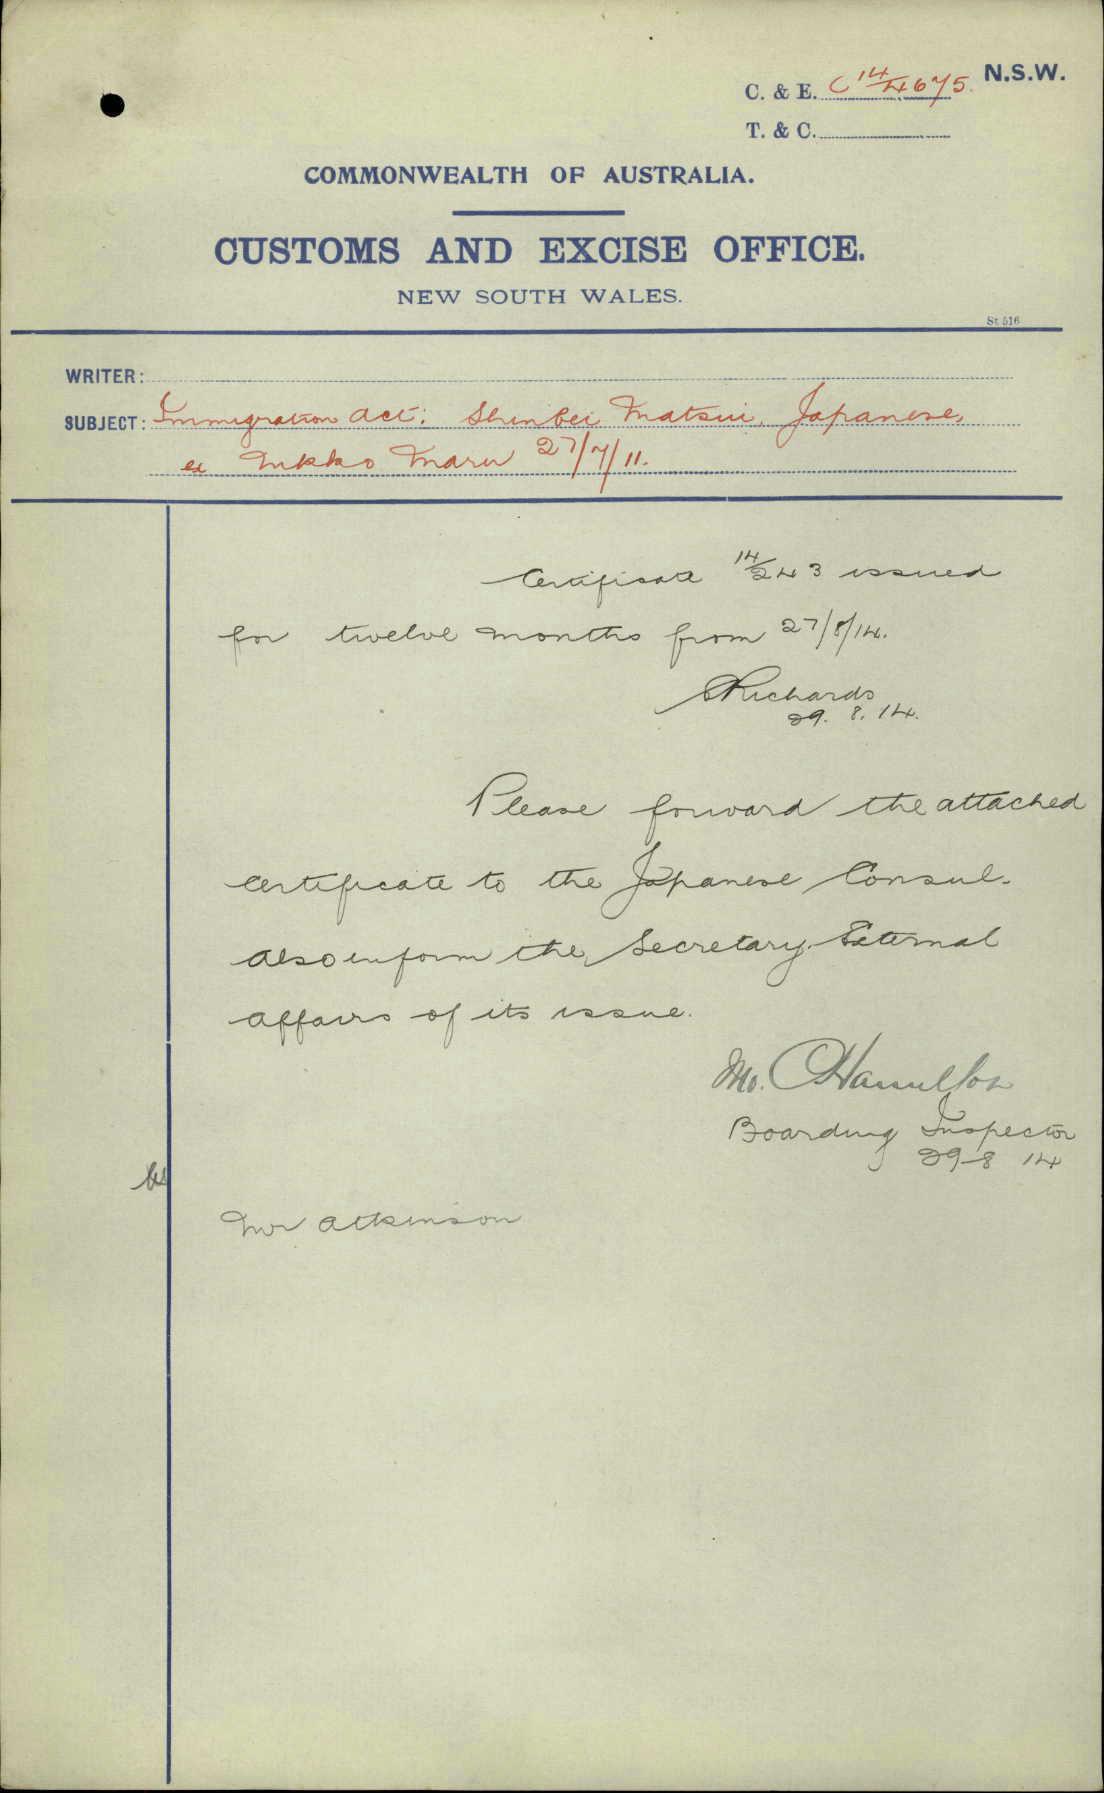 N.S.W.
C. & E. C 14/4675
T. & C.
COMMONWEALTH OF AUSTRALIA.
CUSTOMS AND EXCISE OFFICE.
NEW SOUTH WALES.
St 516
WRITER:
SUBJECT: Immigration Act: Shinbei Matsui, Japanese,
ex Nikko Maru 27/7/11.
Certificate 14/243 issued
for twelve months from 27/8/14.
Richards
29. 8. 14.
Please forward the attached
certificate to the Japanese Consul.
also inform the Secretary External
Affairs of its issue.
Hamilton
Boarding Inspector
29-8 14
Mr Atkinson